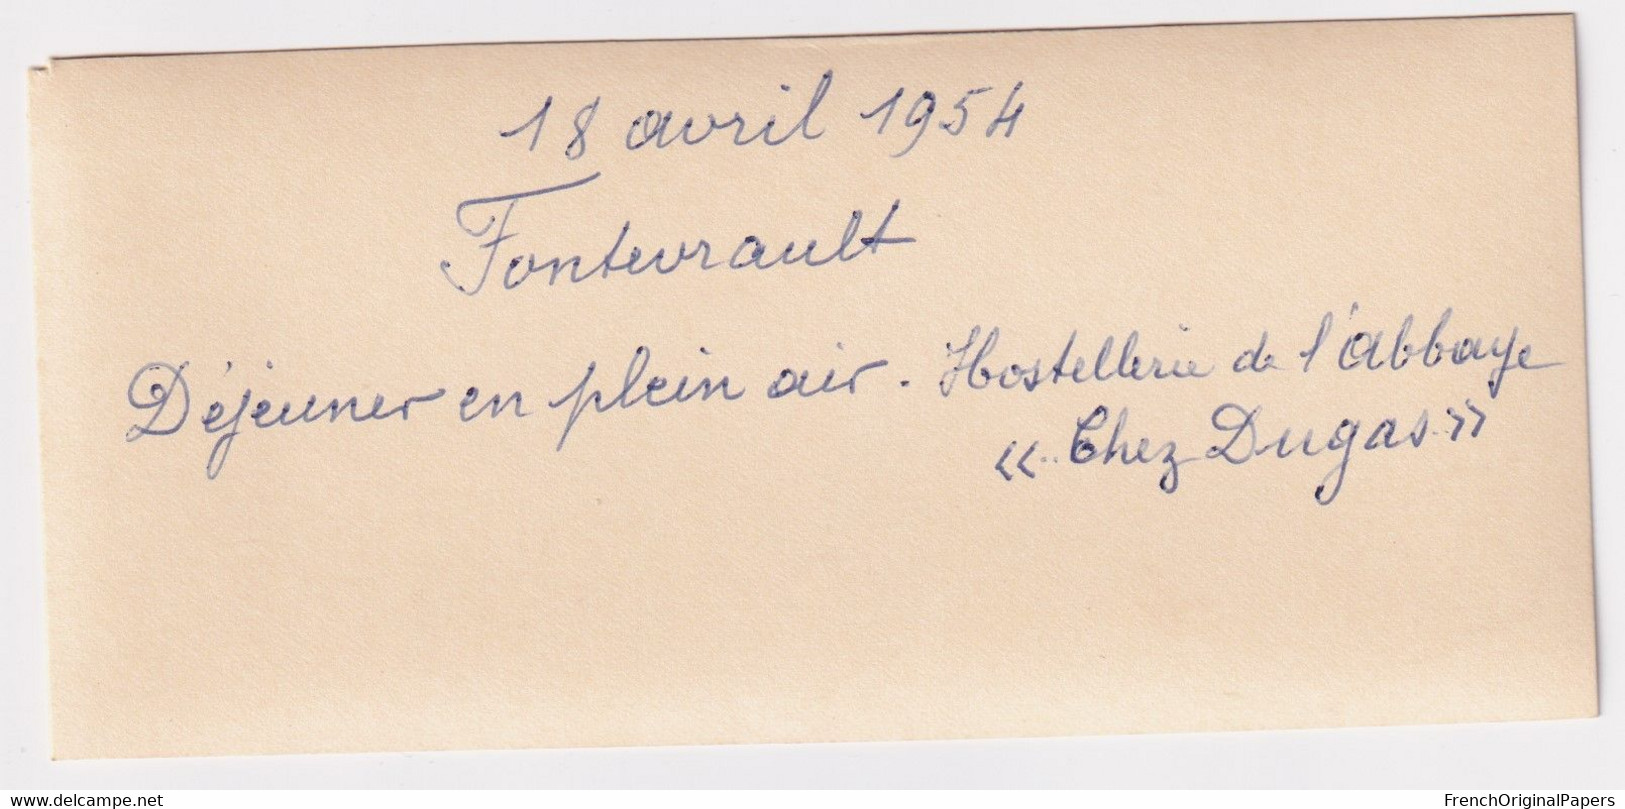 18 avril 1954
Fontevrault
Déjeuner en plein air. Hostellerie de l'Abbaye
«Chez Dugas»
www.delcampe.net
FrenchOriginalPapers